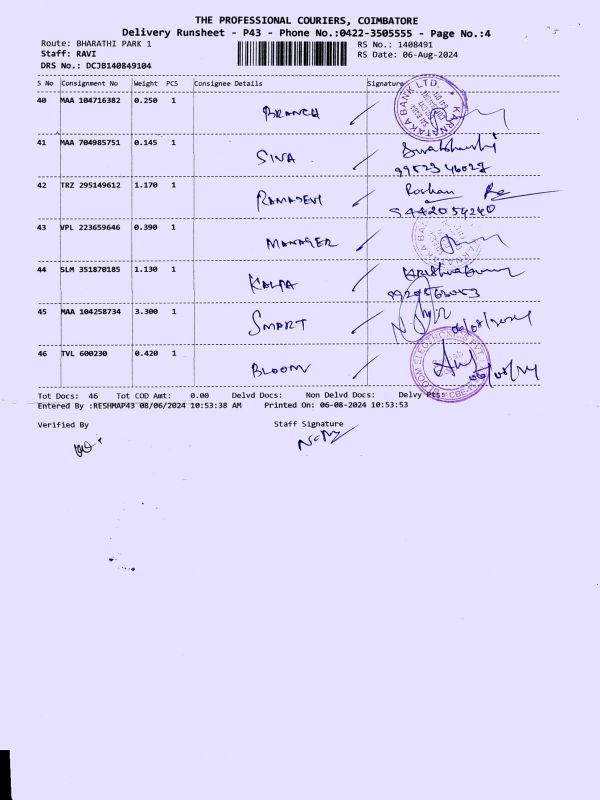 THE PROFESSIONAL COURIERS, COIMBATORE
Delivery Runsheet - P43 - Phone No.:0422-3505555 - Page No.:4
Route: BHARATHI PARK 1
RS No.: 1408491
Staff: RAVI
RS Date: 06-Aug-2024
DRS No.: DCJB140849104
S No Consignment No Weight PCS Consignee Details Signature
40 MAA 104716382 0.250 1 BRANCH
KARNATAKA BANK LTD.
41 MAA 704985751 0.145 1 SIVA
42 TRZ 295149612 1.170 1 RAMADEVI Roshan
9442054240
43 VPL 223659646 0.390 1 MANAGER
44 SLM 351870185 1.130 1 KALPA
45 MAA 104258734 3.300 1 SMART 06/08/2024
46 TVL 600230 0.420 1 BLOOM 06/08/24
Tot Docs: 46 Tot COD Amt: 0.00 Delvd Docs: Non Delvd Docs: Delvy Pts:
Entered By :RESHMAP43 08/06/2024 10:53:38 AM Printed On: 06-08-2024 10:53:53
Verified By Staff Signature